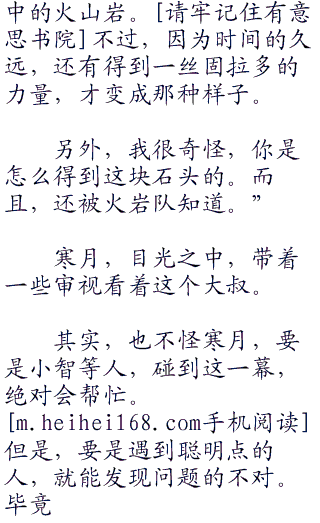 中的火山岩。[请牢记住有意
思书院]不过，因为时间的久
远，还有得到一丝固拉多的
力量，才变成那种样子。
另外，我很奇怪，你是
怎么得到这块石头的。而
且，还被火岩队知道。”
寒月，目光之中，带着
一些审视看着这个大叔。
其实，也不怪寒月，要
是小智等人，碰到这一幕，
绝对会帮忙。
[m.heihei168.com手机阅读]
但是，要是遇到聪明点的
人，就能发现问题的不对。
毕竟